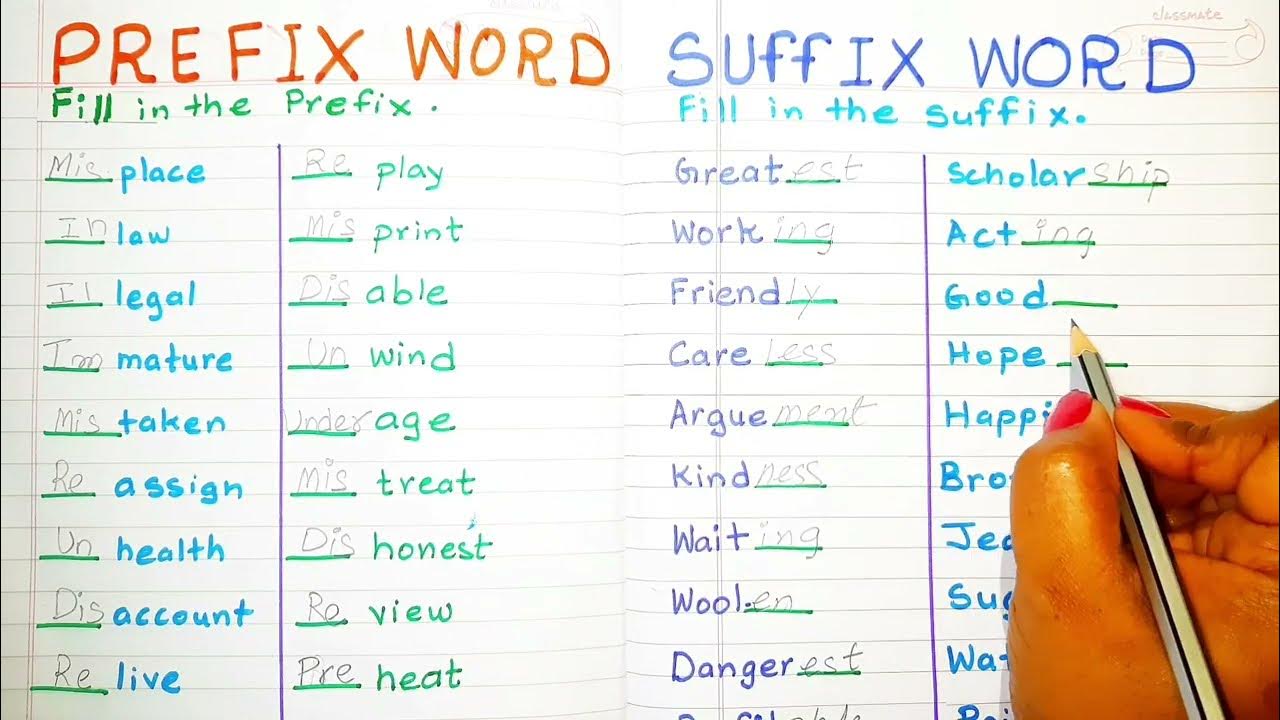 classmate
PREFIX WORD
Fill in the Prefix.
Misplace
Inlaw
Illegal
Immature
Mistaken
Reassign
Unhealth
Disaccount
Relive
Replay
Misprint
Disable
Unwind
Underage
Mistreat
Dishonest
Review
Preheat
SUffIX WORD
Fill in the suffix.
Greatest
Working
Friendly
Careless
Arguement
Kindness
Waiting
Woolen
Dangerest
Scholarship
Acting
Good
Hope